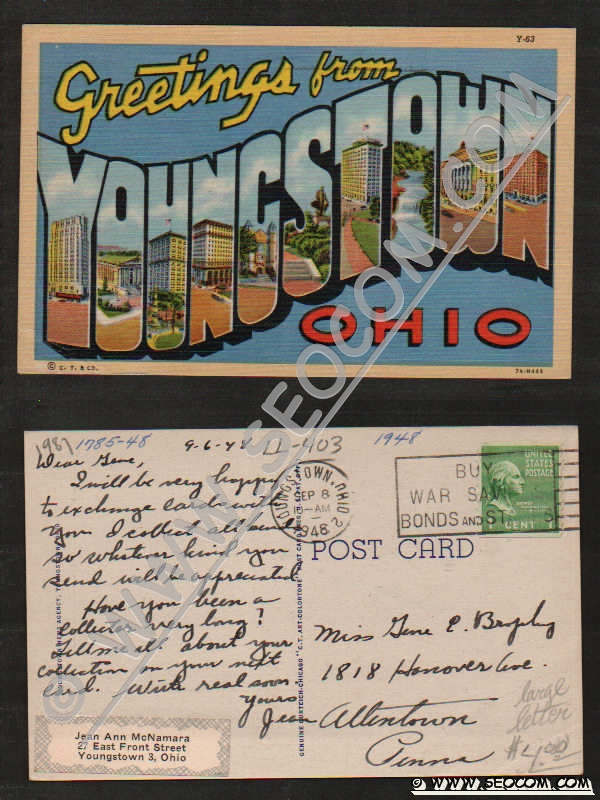 Y-63
Greetings from
YOUNGSTOWN
OHIO
© C. T. & CO.
7A-H444
WWW.SEOCOM.COM
1987 1785-48 9-6-48 LL-403 1948
Dear Gene,
I will be very happy
to exchange cards with
you. I collect all kinds
so whatever kind you
send will be appreciated.
Have you been a
collector very long?
Tell me all about your
collection on your next
card. Write real soon.
Yours,
Jean
Jean Ann McNamara
27 East Front Street
Youngstown 3, Ohio
GENUINE CURTEICH-CHICAGO "C.T. ART-COLORTONE" POST CARD
YOUNGSTOWN, OHIO 2
SEP 8
-AM
1948
BUY
WAR SAV
BONDS AND ST S
UNITED
STATES
POSTAGE
1 CENT
POST CARD
Miss Gene E. Brophy
1818 Hanover Ave.
Allentown
Penna
large
letter
$4.00
© WWW.SEOCOM.COM